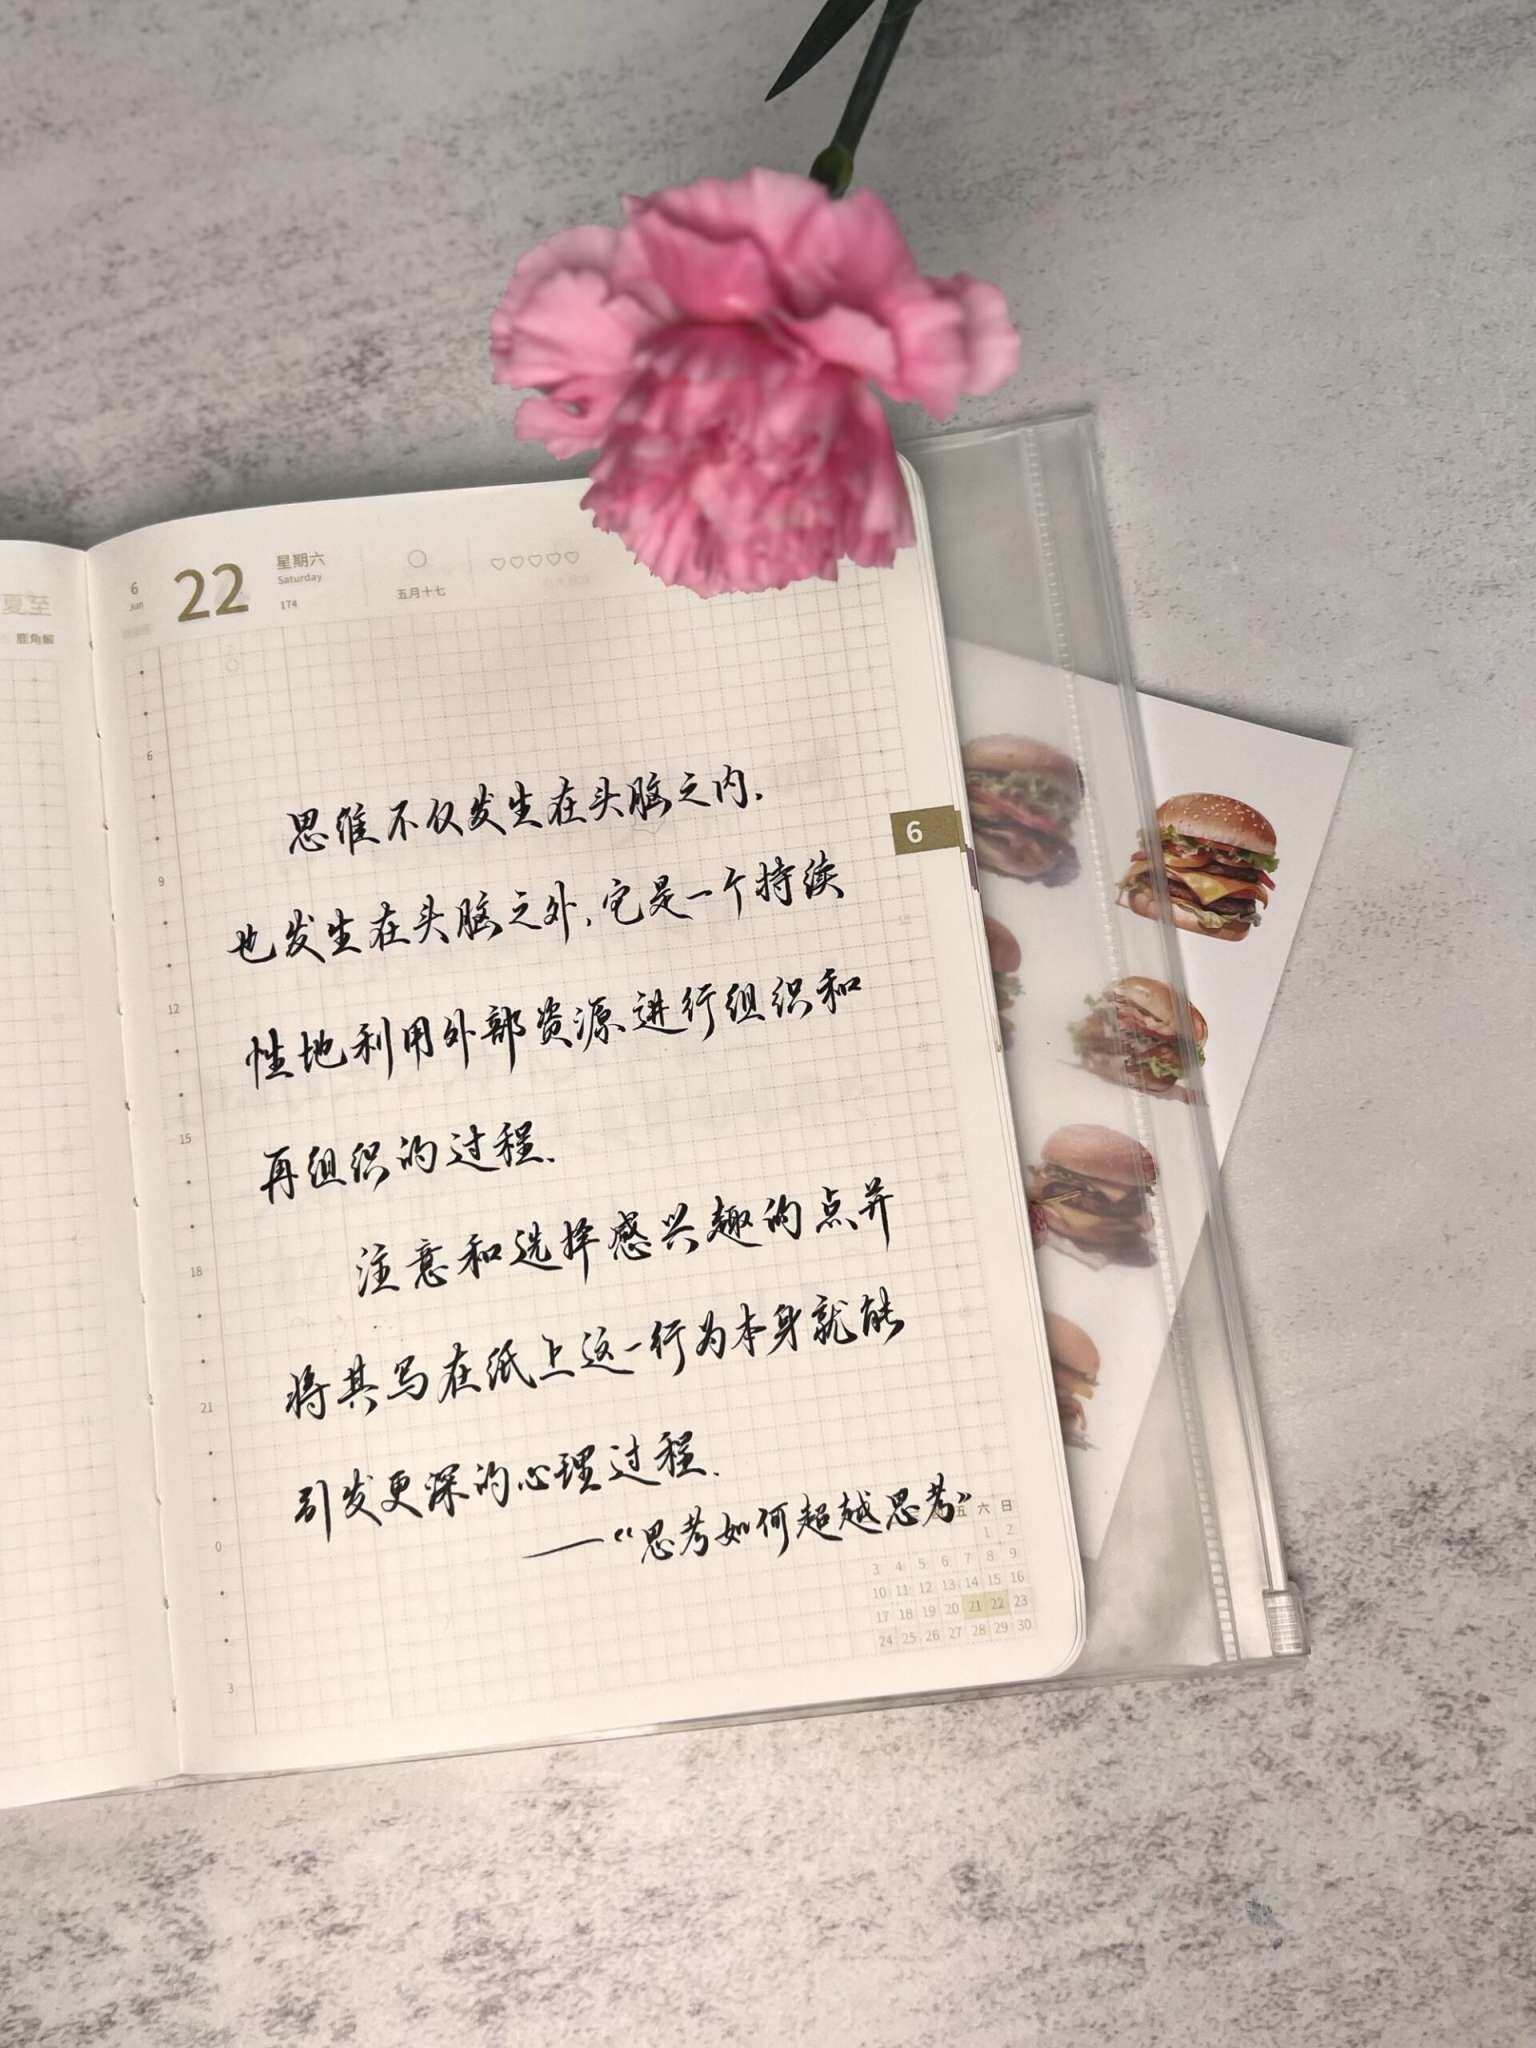 夏至
鹿角解
6
Jun
22
星期六
Saturday
174
五月十七
6
9
12
15
18
21
0
3
思维不仅发生在头脑之内.
也发生在头脑之外,它是一个持续
性地利用外部资源进行组织和
再组织的过程.
注意和选择感兴趣的点并
将其写在纸上这一行为本身就能
引发更深的心理过程.
——“思考如何超越思考”
6
五 六 日
1 2
3 4 5 6 7 8 9
10 11 12 13 14 15 16
17 18 19 20 21 22 23
24 25 26 27 28 29 30